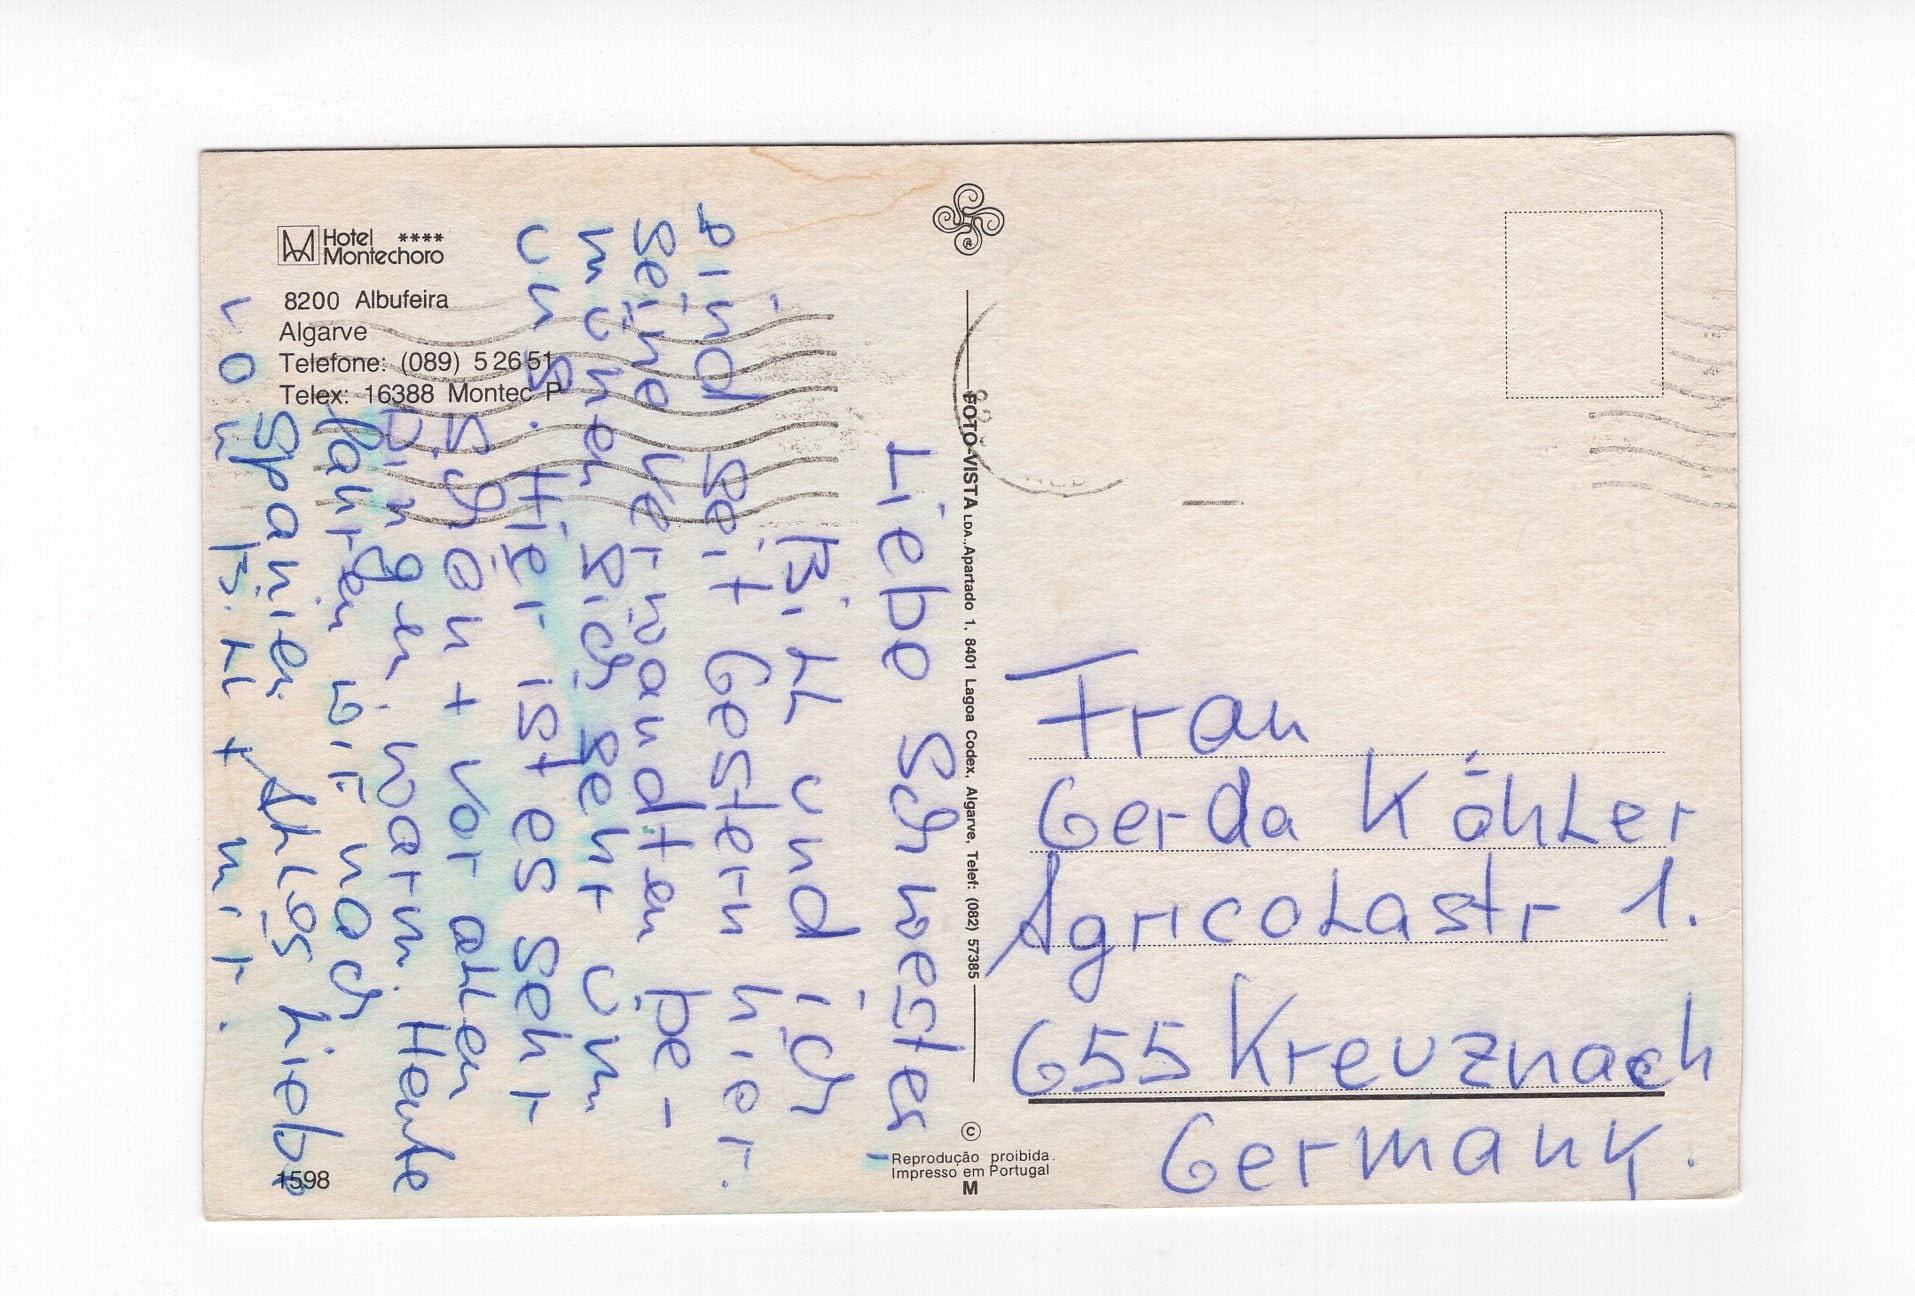 Hotel ****
Montechoro
8200 Albufeira
Algarve
Telefone: (089) 5 26 51
Telex: 16388 Montec P
Liebe Schwester,
Bill und ich
sind seit Gestern hier.
Seine Verwandten be-
mühen sich sehr um
uns. Hier ist es sehr
schön + vor allen
Dingen warm. Heute
fahren wir nach
Spanien. Alles Liebe
von Bill + mir.
1598
FOTO-VISTA LDA., Apartado 1, 8401 Lagoa Codex, Algarve, Telef: (082) 57385
© Reprodução proibida.
Impresso em Portugal
M
Frau
Gerda Köhler
Agricolastr 1.
655 Kreuznach
Germany.